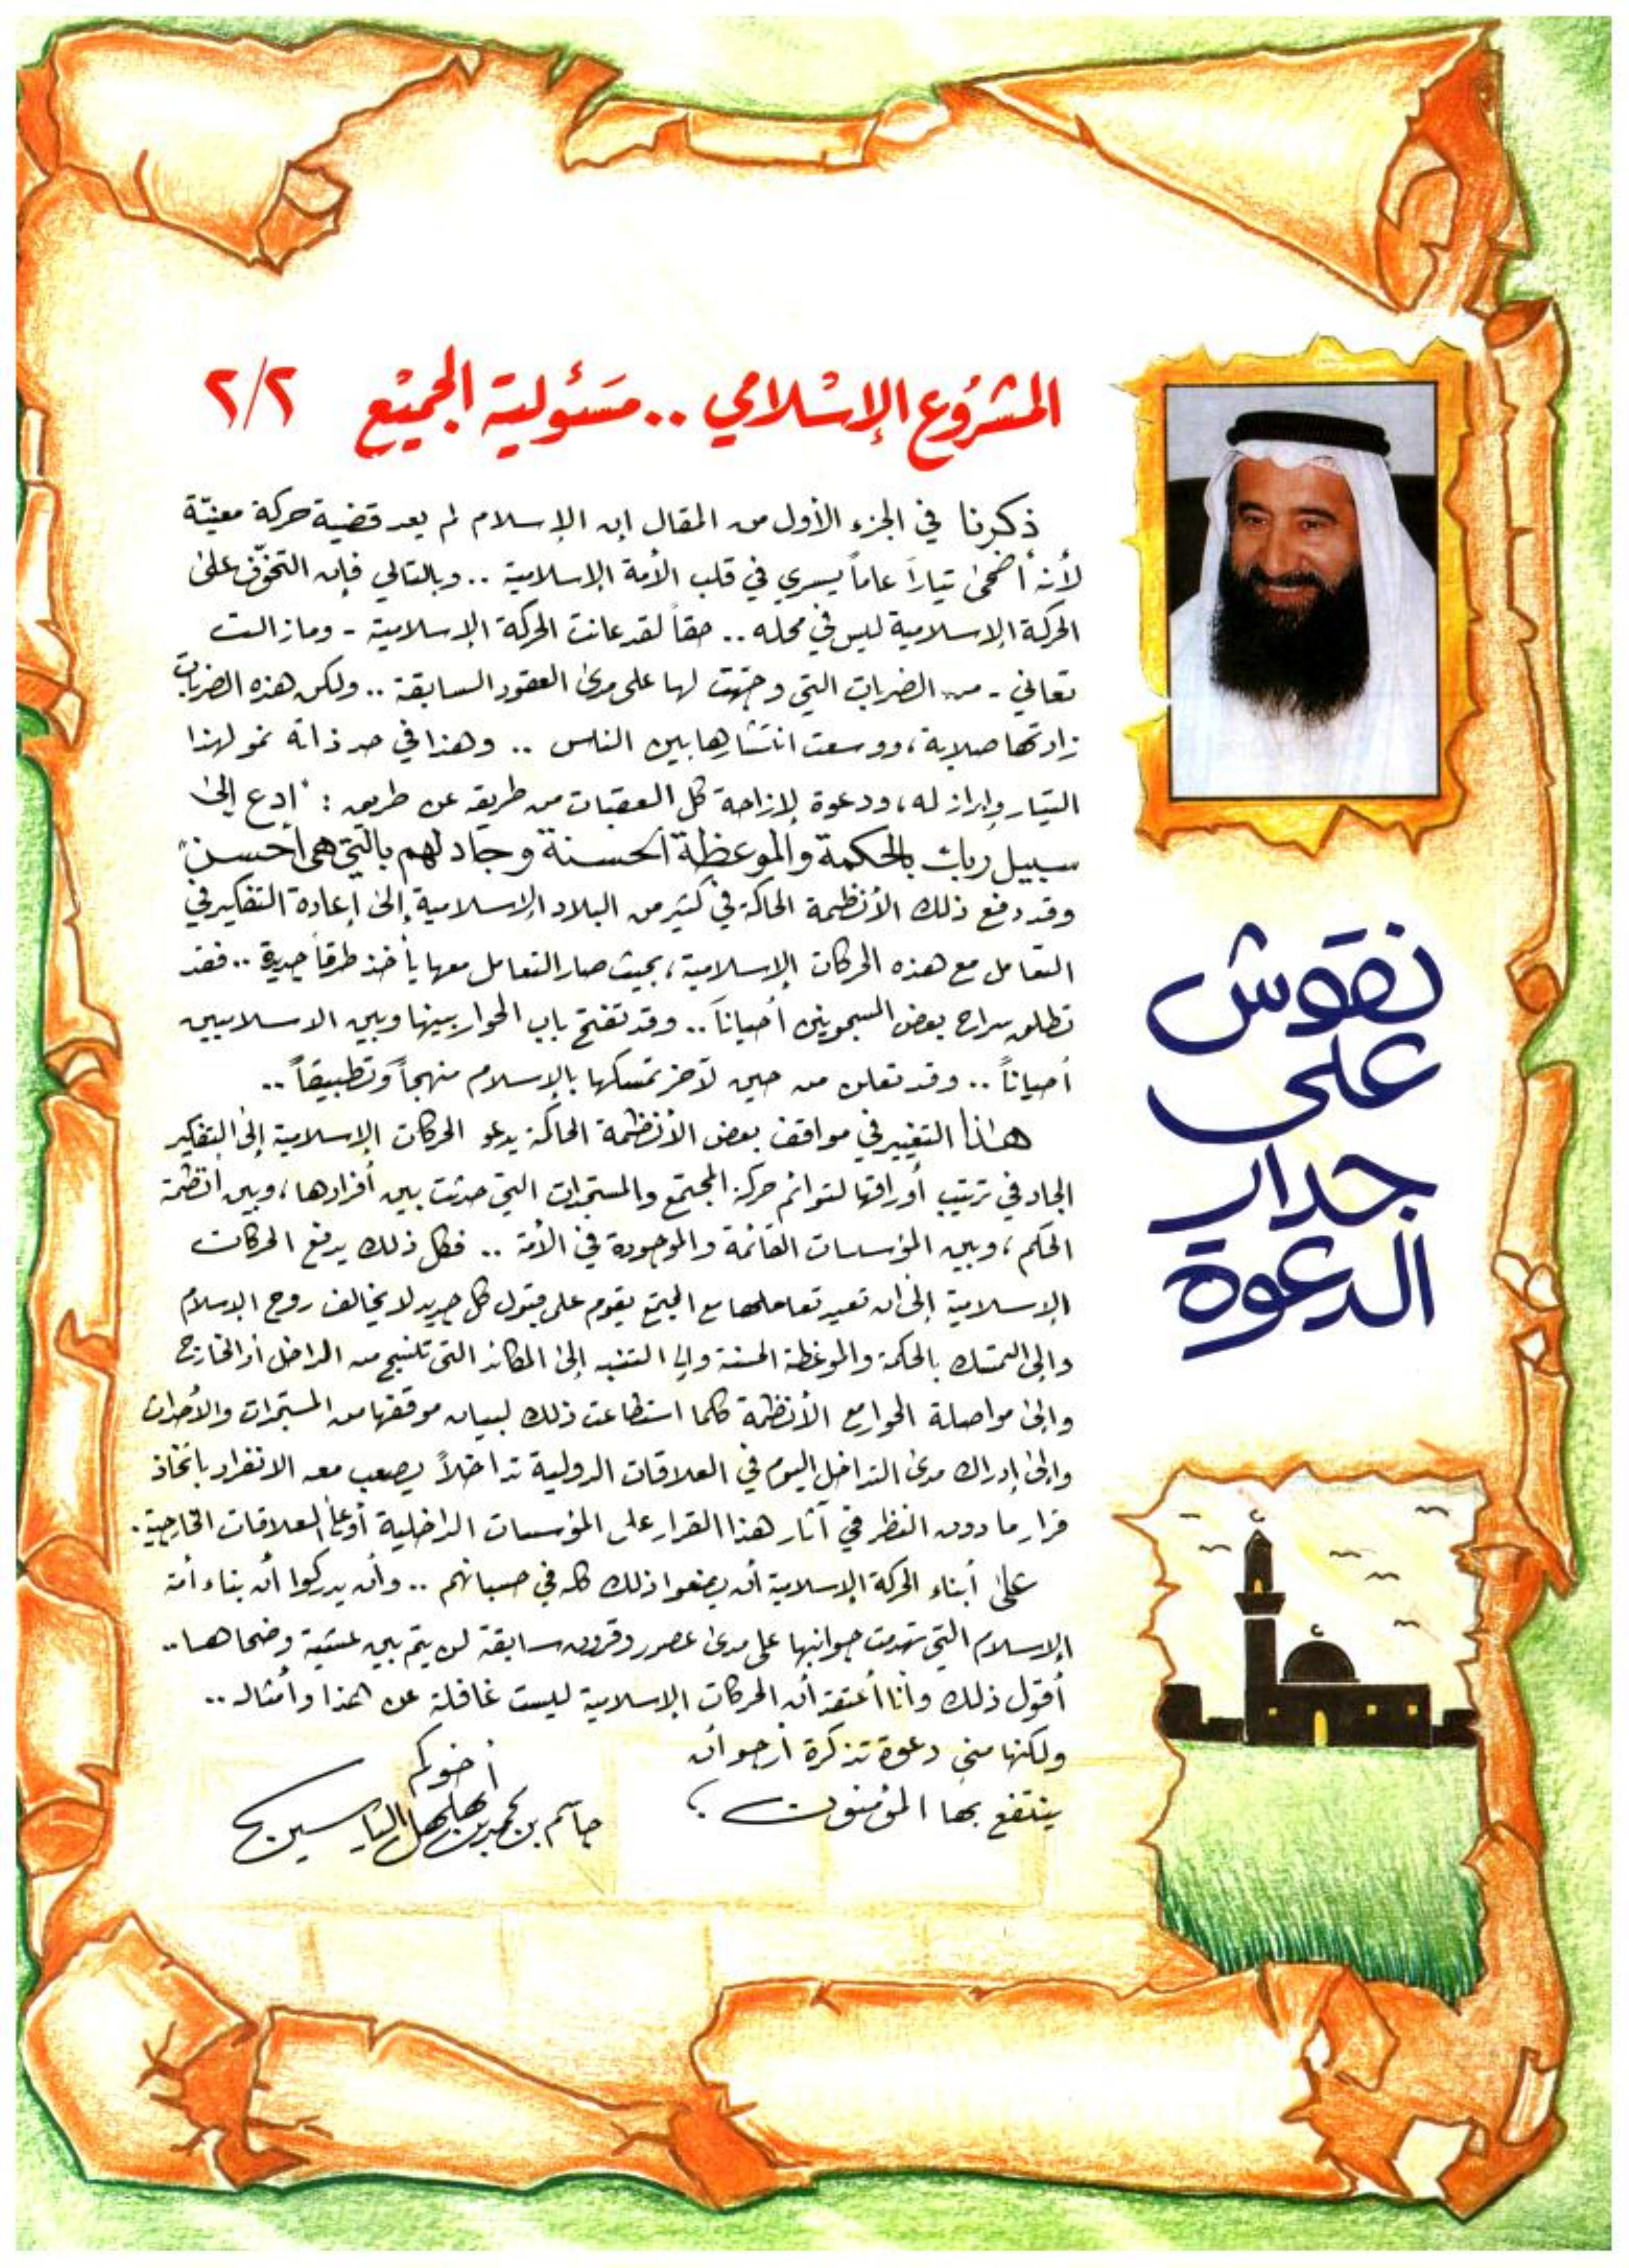 المشروع الإسلامي .. مسئولية الجميع ٢/٢
ذكرنا في الجزء الأول من المقال إن الإسلام لم يعد قضية حركة معينّة
لأنه أضحى تياراً عاماً يسري في قلب الأمة الإسلامية .. وبالتالي فإن التخوّف على
الحركة الإسلامية ليس في محله .. حقاً لقد عانت الحركة الإسلامية - ومازالت
تعاني - من الضربات التي وجهّت لها على مدى العقود السابقة .. ولكن هذه الضربات
زادتها صلابة، ووسعت انتشارها بين الناس .. وهذا في حد ذاته نمو لهذا
التيار وإبراز له، ودعوة لإزاحة كل العقبات من طريقه عن طريق : "ادع إلى
سبيل ربك بالحكمة والموعظة الحسنة وجادلهم بالتي هي أحسن"
وقد دفع ذلك الأنظمة الحاكمة في كثير من البلاد الإسلامية إلى إعادة التفكير في
التعامل مع هذه الحركات الإسلامية، بحيث صار التعامل معها يأخذ طرقاً جديدة .. فقد
تطلق سراح بعض المسجونين أحياناً .. وقد تفتح باب الحوار بينها وبين الاسلاميين
أحياناً .. وقد تعلن من حين لآخر تمسكها بالإسلام منهجاً وتطبيقاً ..
هـذا التغيير في مواقف بعض الأنظمة الحاكمة يدعو الحركات الإسلامية إلى التفكير
الجاد في ترتيب أوراقها لتوائم حركة المجتمع والمستجدات التي حدثت بين أفرادها، وبين أنظمة
الحكم، وبين المؤسسات القائمة والموجودة في الأمة .. فكل ذلك يدفع الحركات
الإسلامية إلى أن تعيد تعاملها مع المجتمع يقوم على قبول كل جديد لا يخالف روح الإسلام
وإلى التمسك بالحكمة والموعظة الحسنة وإلى التنبه إلى المكائد التي تنسج من الداخل أو الخارج
وإلى مواصلة الحوار مع الأنظمة كلما استطاعت ذلك لبيان موقفها من المستجدات والأحداث
وإلى إدراك مدى التداخل اليوم في العلاقات الدولية تداخلاً يصعب معه الانفراد باتخاذ
قرار ما دون النظر في آثار هذا القرار على المؤسسات الداخلية أو على العلاقات الخارجية.
على أبناء الحركة الإسلامية أن يضعوا ذلك كله في حسبانهم .. وأن يدركوا أن بناء أمة
الإسلام التي تهدمت جوانبها على مدى عصور وقرون سابقة لن يتم بين عشية وضحاها ..
أقول ذلك وأنا أعتقد أن الحركات الإسلامية ليست غافلة عن هذا وأمثاله ..
ولكنها مني دعوة تذكرة أرجو أن
ينتفع بها المؤمنون ؛
أخوكم
جاسم بن محمد بن مهلهل الياسين
نقوش
على
جدار
الدعوة